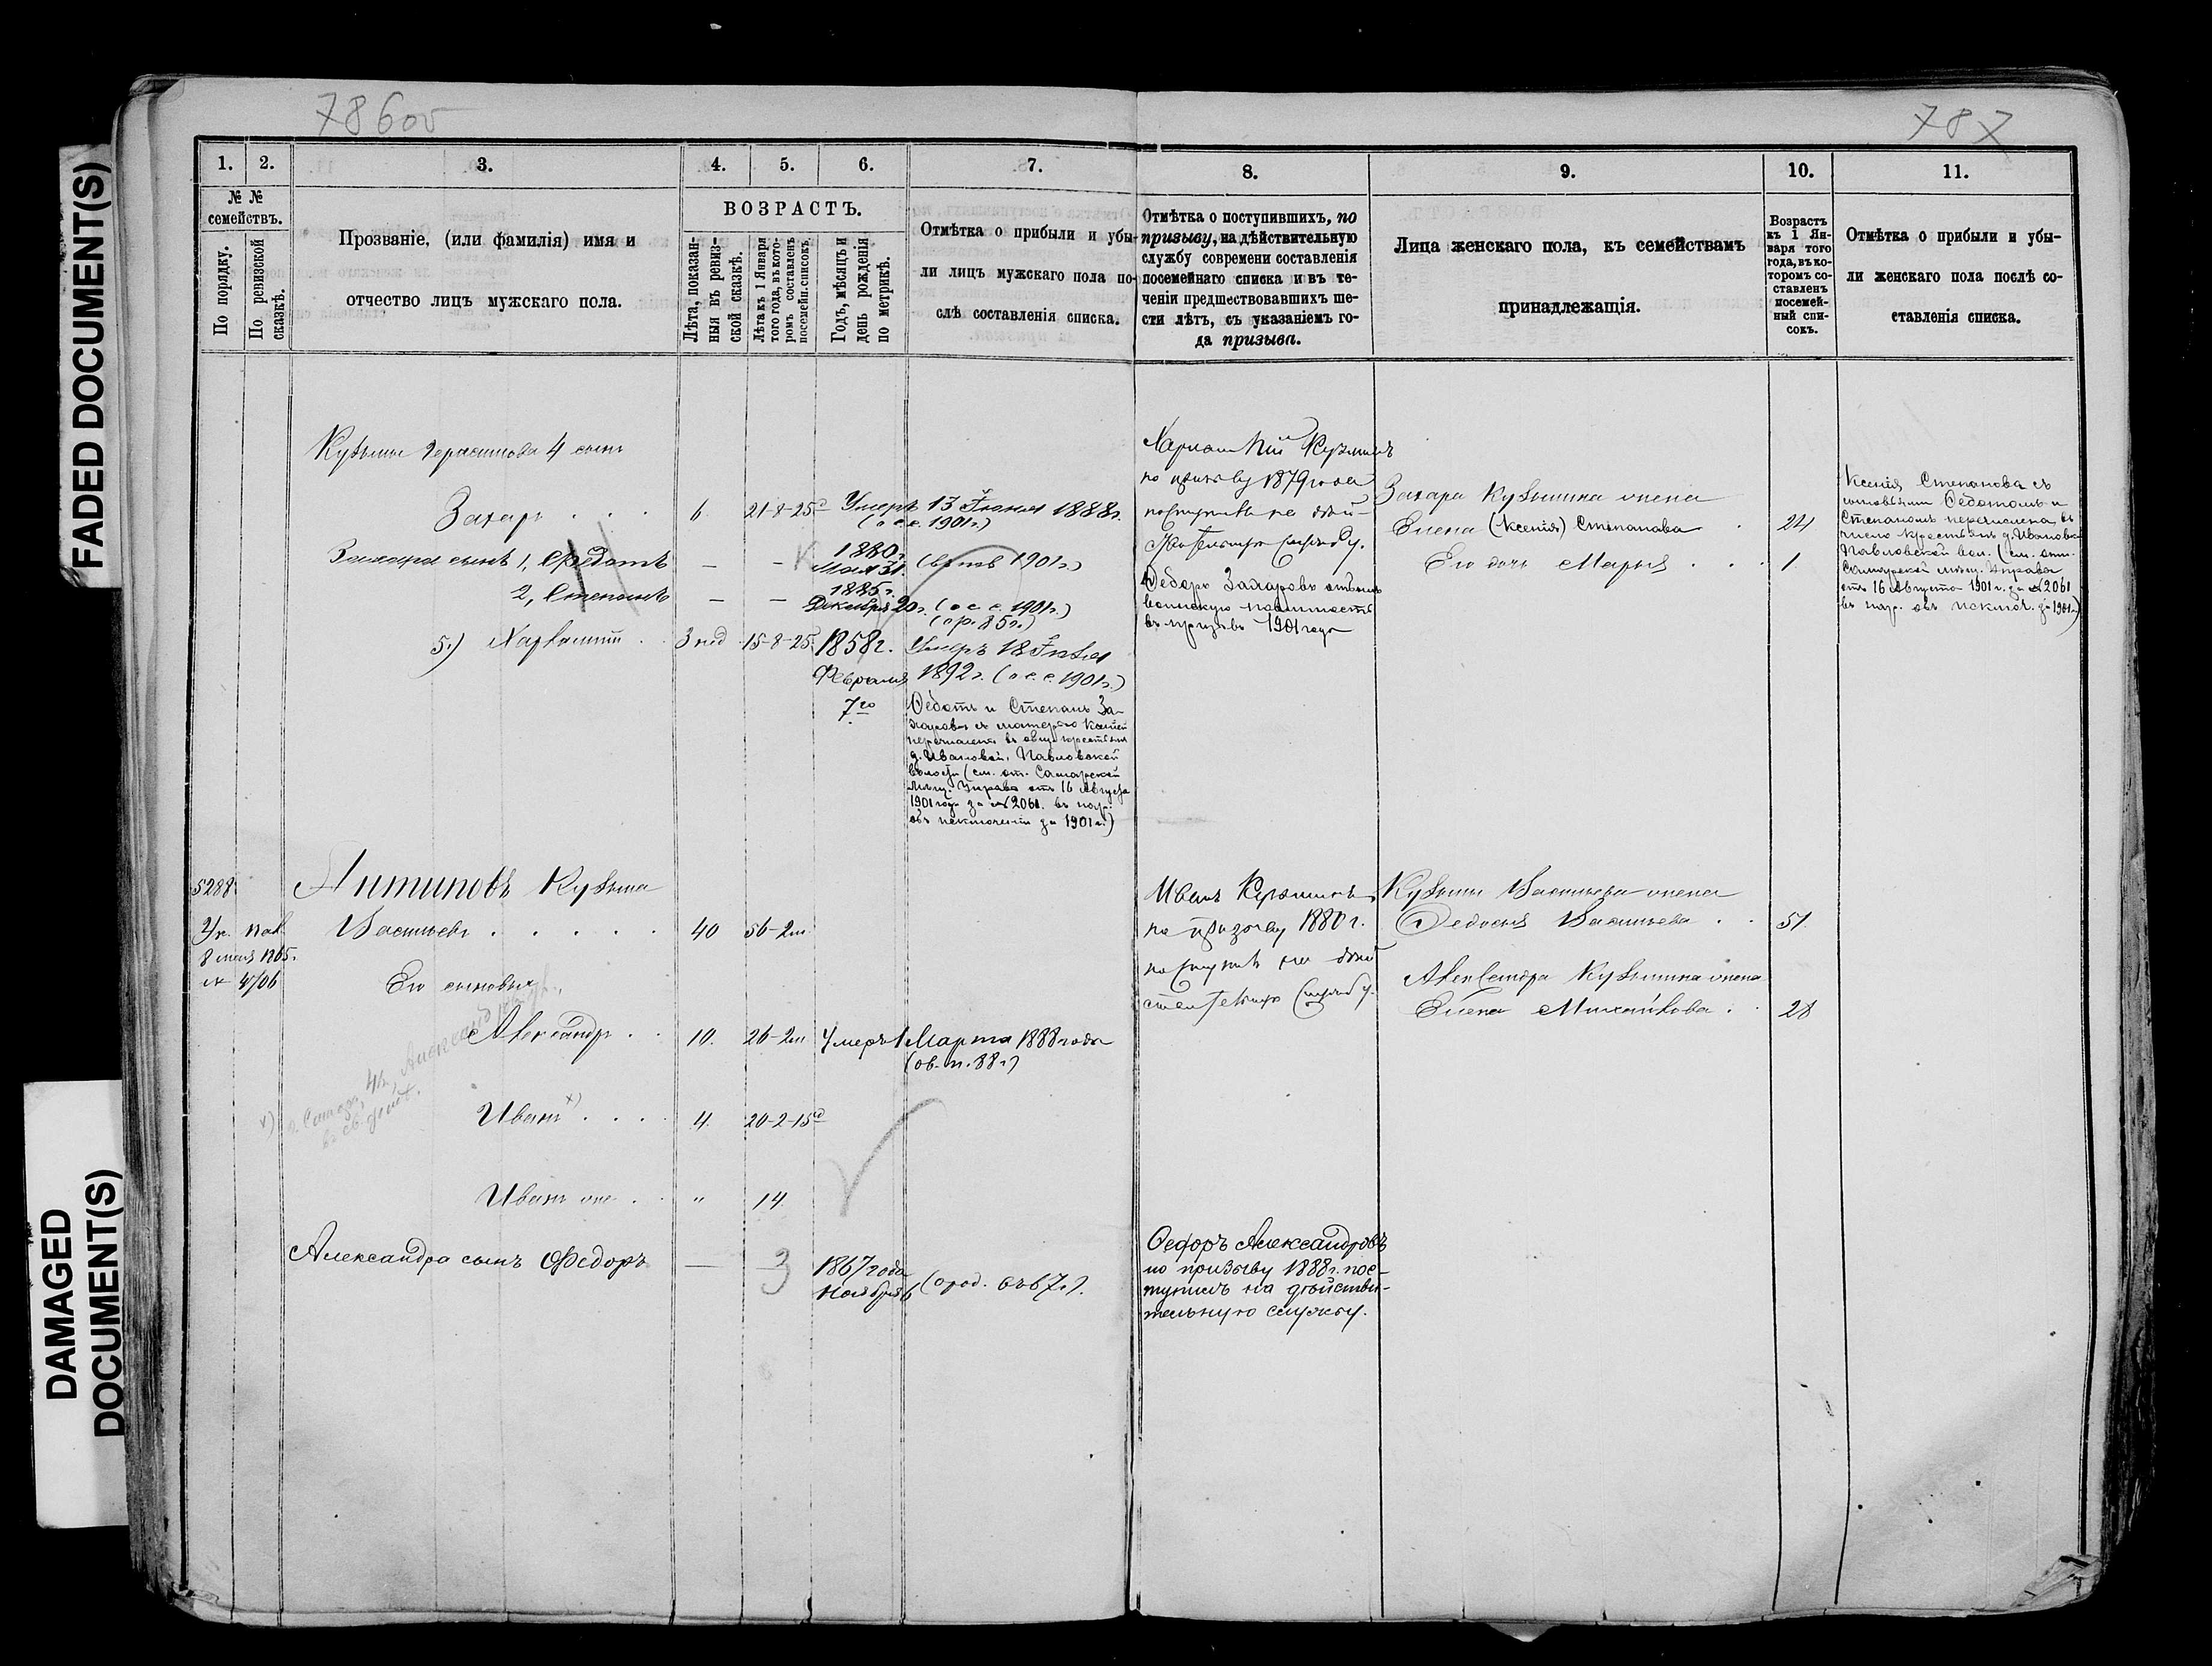 FADED DOCUMENT(S)
DAMAGED
DOCUMENT(S)
786об
787
1.
2.
3.
4.
5.
6.
7.
8.
9.
10.
11.
№ №
семействъ.
По порядку.
По ревизской
сказкѣ.
Прозваніе, (или фамилія) имя и
отчество лицъ мужскаго пола.
ВОЗРАСТЪ.
Лѣта, показан-
ныя въ ревиз-
ской сказкѣ.
Лѣта къ 1 Января
того года, въ кото-
ромъ составленъ
посемейн. списокъ.
Годъ, мѣсяцъ и
день рожденія
по метрикѣ.
Отмѣтка о прибыли и убы-
ли лицъ мужскаго пола по-
слѣ составленія списка.
Отмѣтка о поступившихъ, по
призыву, на дѣйствительную
службу современи составленія
посемейнаго списка и въ те-
ченіи предшествовавшихъ ше-
сти лѣтъ, съ указаніемъ го-
да призыва.
Лица женскаго пола, къ семействамъ
принадлежащія.
Возрастъ
къ 1 Ян-
варя того
года, въ ко-
торомъ со-
ставленъ
посемей-
ный спи-
сокъ.
Отмѣтка о прибыли и убы-
ли женскаго пола послѣ со-
ставленія списка.
Кузьмы Герасимова 4 сынъ
Захаръ
6
21-8-25
Умеръ 13 Іюня 1888г.
(о с с. 1901г.)
Захара сынъ 1, Федотъ
—
—
1880г.
Мая 31.
1901г.)
2, Степанъ
—
—
1885г.
Декабря 20г. (о с с. 1901г.)
5)
3 нед
15-8-25
1858г.
Февраля
7го
Умеръ 18 Іюля
1892г. (о с. с. 1901г.)
Федотъ и Степанъ За-
харовы съ матерью Ксеніей
перечислены въ общ. крестьянъ
д. Ивановки, Павловской
волости (см. от. Самарской
Мѣщ. Управы отъ 16 Августа
1901 года за № 2061. въ нар.
объ исключеніи за 1901г.)
Кузминъ
по призыву 1879 года
поступилъ на дѣй-
ствительную службу.
Федоръ Захаровъ отбылъ
воинскую повинность
въ призывъ 1901 года
Захара Кузьмина жена
Елена (Ксенія) Степанова
24
Его дочь Марья
1.
Ксенія Степанова съ
сыновьями Федотомъ и
Степаномъ перечислена въ
число крестьянъ д. Ивановки
Павловской вол. (см. отн.
Самарской мѣщ. Управы
отъ 16 Августа 1901 г. за № 2061
въ нар. объ исключ. за 1901г.)
5288
Антиповъ Кузьма
Васильевъ
40
56-2м
8 мая 1865.
Его сыновья,
Александръ
10.
26-2м
Умеръ 1 Марта 1888 года
Иванъ х)
4.
20-2-15
Иванъ же
"
14
Александра сынъ Федоръ
—
3
1867 года
Ноября 6
Иванъ Кузминъ
по призыву 1880 г.
поступилъ на дѣй
ствительную службу.
Федоръ Александровъ
по призыву 1888 г. пос-
тупилъ на дѣйстви-
тельную службу.
Кузьмы Васильева жена
Федосья Васильева
51
Александра Кузьмина жена
Елена Михайлова
28